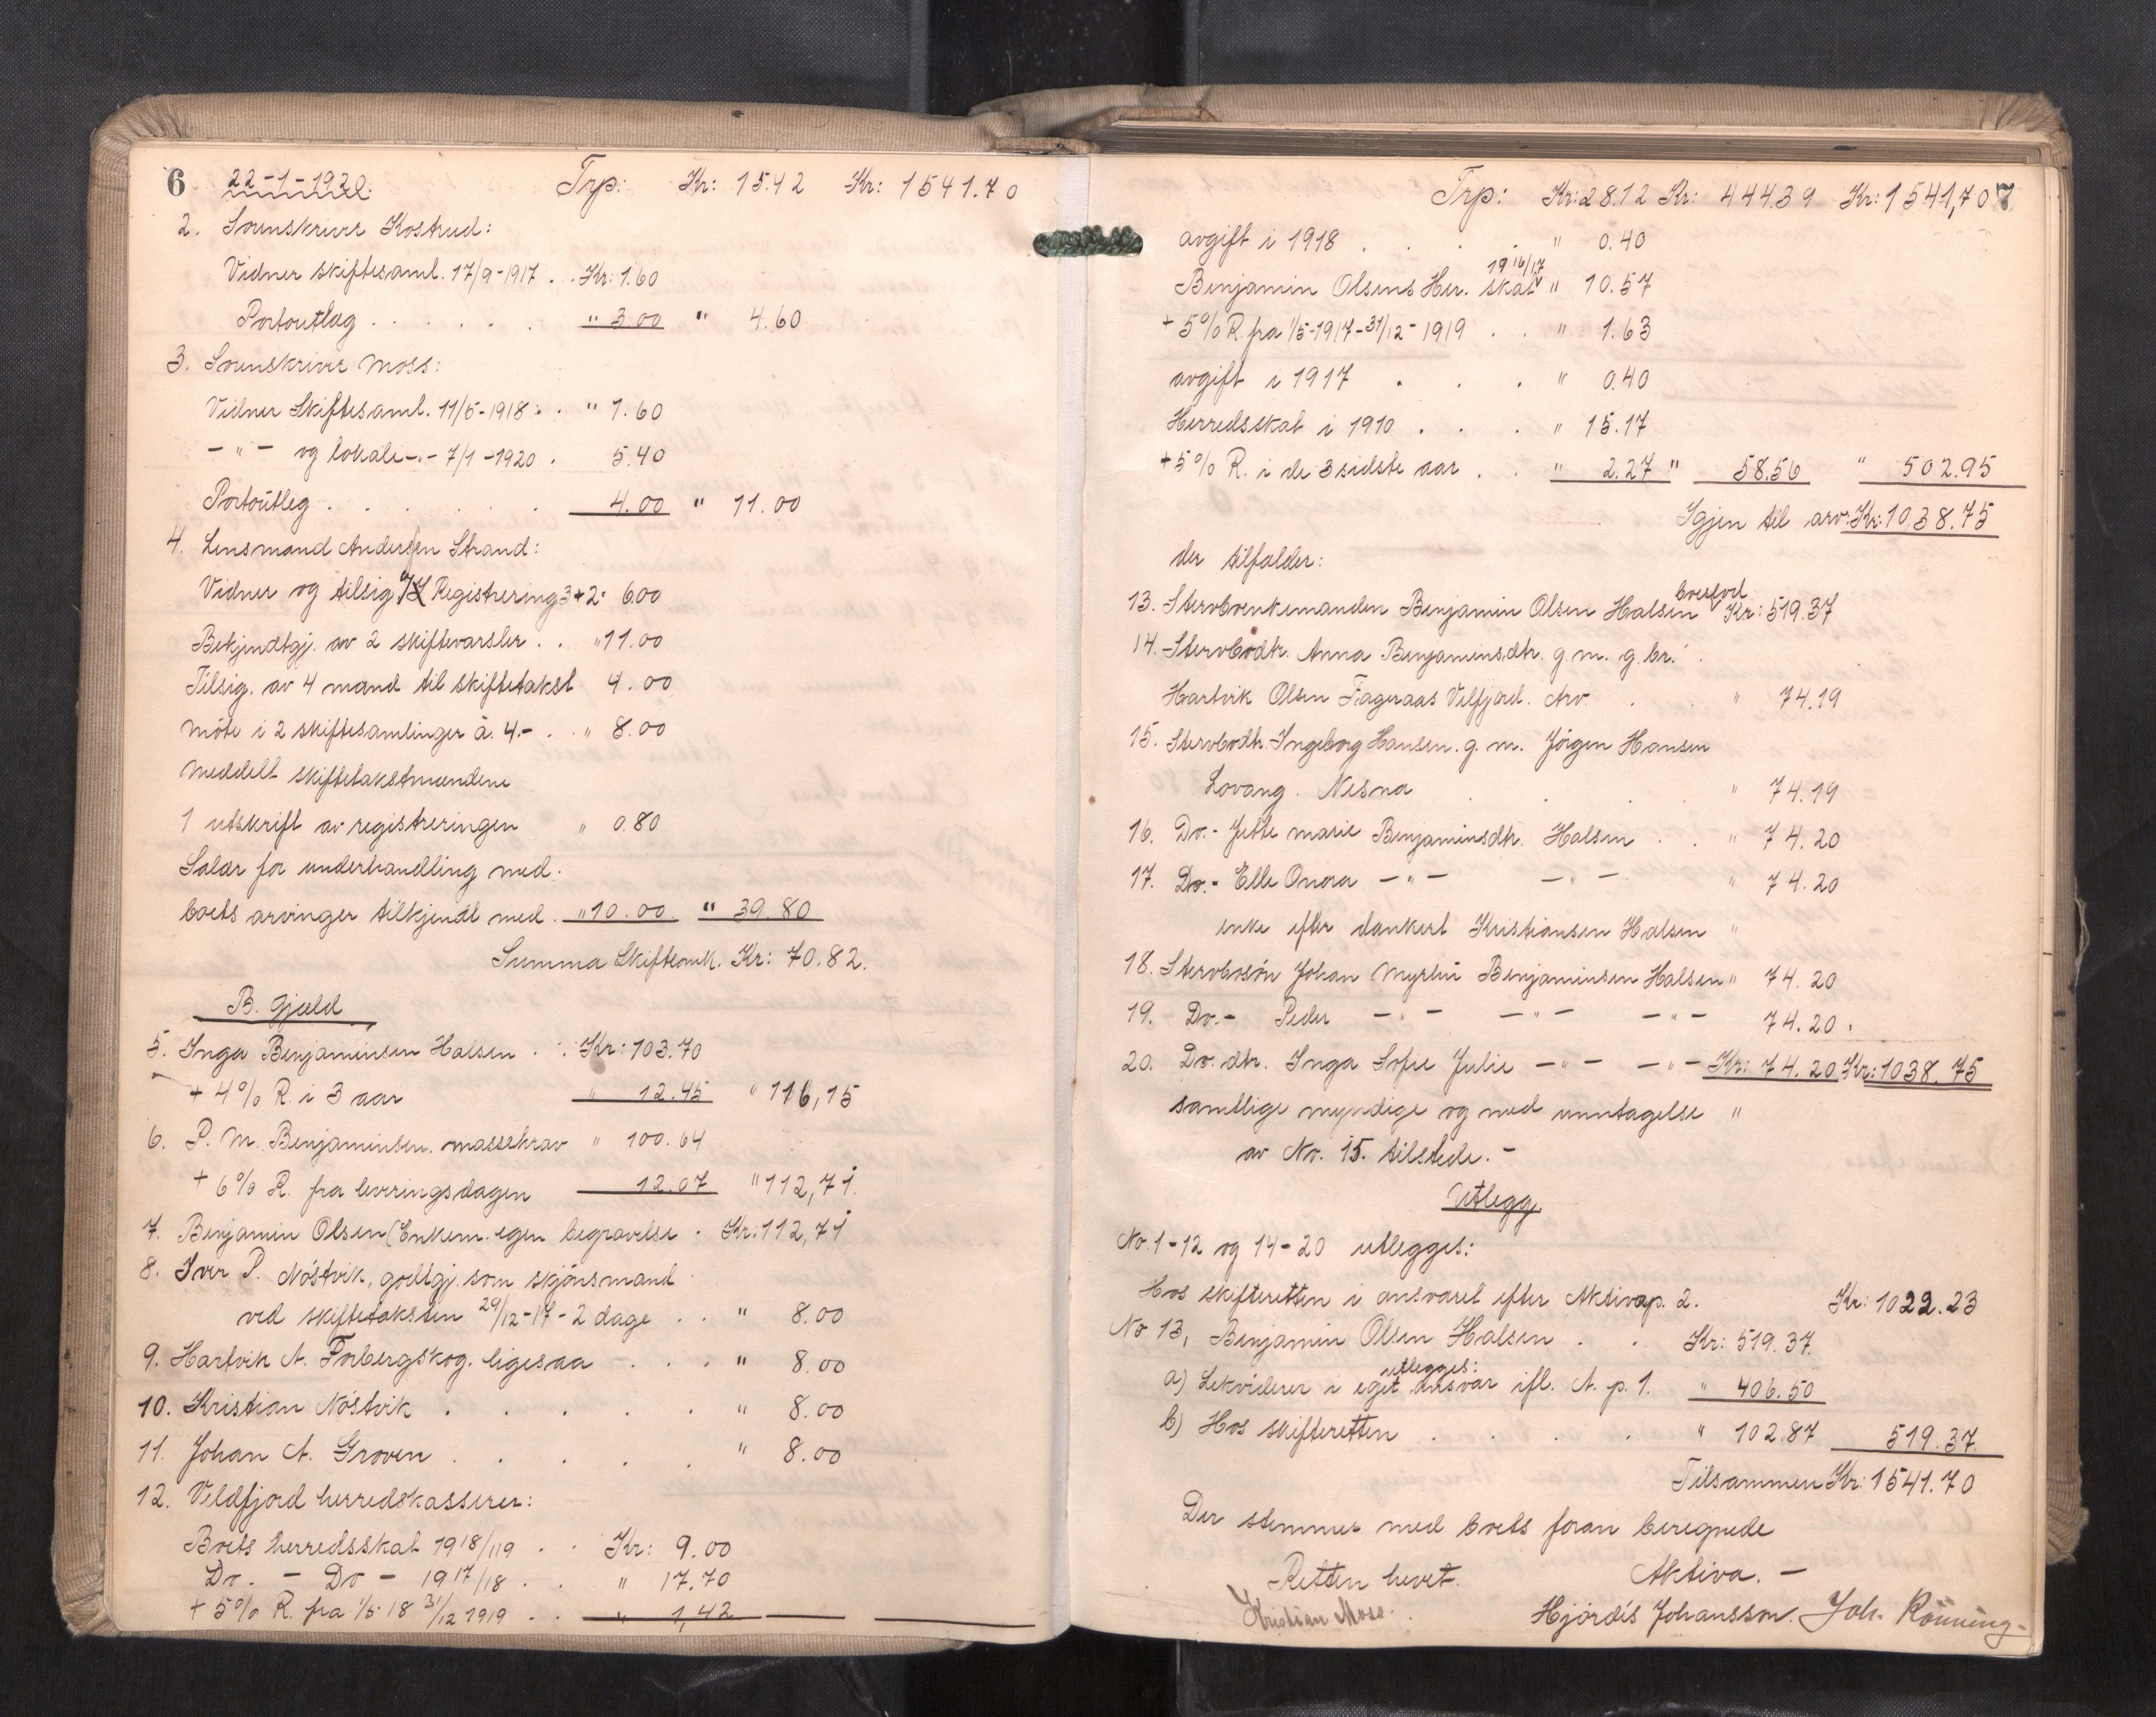 6 22-1-1920. Trp: Kr: 15.42 Kr: 1541.70
2. Sorenskriver Kostrud:
Vidner skiftesaml. 17/9-1917 . . Kr: 1.60
Portoutlæg . . . . . " 3.00 " 4.60
3. Sorenskriver Moss:
Vidner Skiftesaml. 11/5-1918 . . " 1.60
- " - og lokale - " - 7/1-1920 . 5.40
Portoutleg . . . . . . 4.00 " 11.00
4. Lensmand Andersen Strand:
Vidner og tilsig. Registrering 3+2 = 6.00
Bekjendtgj. av 2 skiftevarsler . . " 11.00
Tilsig. av 4 mand til skiftetakst 4.00
Møte i 2 skiftesamlinger à 4.- . . " 8.00
Meddelt skiftetakstmændene
1 utskrift av registreringen " 0.80
Salær for underhandling med.
boets arvinger tilkjendt med. " 10.00 " 39.80
Summa Skifteomk. Kr: 70.82.
B. Gjæld
5. Inga Benjaminsen Halsen . . Kr: 103.70
+ 4% R. i 3 aar " 12.45 " 116,15
6. P. M. Benjaminsen. massekrav " 100.64
+ 6% R. fra leveringsdagen 12.07 " 112,71
7. Benjamin Olsen (Enkem. egen begravelse . Kr: 112,71
8. Iver P. Nöstvik, godtgj. som skjönsmand
ved skiftetaksten 29/12-17 - 2 dage . . " 8.00
9. Hartvik A. Forbergskog. ligesaa . . . " 8.00
10. Kristian Nöstvik . . . . . " 8.00
11. Johan A. Groven . . . . . " 8.00
12. Veldfjord herredskasserer:
Boets herredsskat 1918/119 . . Kr: 9.00
Do. - Do - 1917/18 . . " 17.70
+ 5% R. fra 1/5 18 31/12 1919 . . " 1,42
Trp: Kr: 28.12 Kr: 444.39 Kr: 1541,70 7
avgift i 1918 . . . . " 0.40
Benjamin Olsens Her. skat 1916/17 " 10.57
+ 5% R. fra 1/5-1917-31/12-1919 . . " 1.63
avgift i 1917 . . . " 0.40
Herredsskat i 1910 . . . " 15.17
+ 5% R. i de 3 sidste aar . . " 2.27 " 58.56 " 502.95
Igjen til arv: Kr: 1038.75
der tilfalder:
13. Stervboenkemanden Benjamin Olsen Halsen boeslod Kr: 519.37
14. Stervbodtr. Anna Benjaminsdtr. g. m. g. br.
Hartvik Olsen Fageraas Velfjord. Arv. . . " 74.19
15. Stervbodtr. Ingeborg Hansen. g. m. Jörgen Hansen
Lovang. Nesna . . . . " 74.19
16. Do. - Jette Marie Benjaminsdtr. Halsen . . " 74.20
17. Do. - Elle Onora - " - - " - " 74.20
enke efter Dankert Kristiansen Halsen "
18. Stervbosön Johan Myrlin Benjaminsen Halsen " 74.20
19. Do. - Peder - " - - " - - " - 74.20 .
20. Do. dtr. Inga Sofie Julie - " - - " - Kr: 74.20 Kr: 1038.75
samtlige myndige og med unntagelse "
av No. 15. tilstede. -
Utlegg.
No. 1-12 og 14-20 utlegges:
Hos skifteretten i ansvaret efter Aktivap. 2. Kr: 1022.23
No 13, Benjamin Olsen Halsen . . Kr: 519.37.
a) Lekviderer i eget utlegges: ansvar ifl. A. p. 1. " 406.50
b) Hos skifteretten . . . . " 102.87 519.37
Tilsammen Kr: 1541.70
Der stemmer med boets foran beregnede
Retten hevet. Aktiva. -
Kristian Moss. Hjördis Johansson. Joh. Rönning-